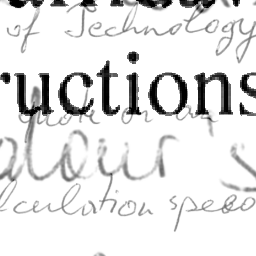 of Technology
ructions
quote on an
alour's
lculation speed